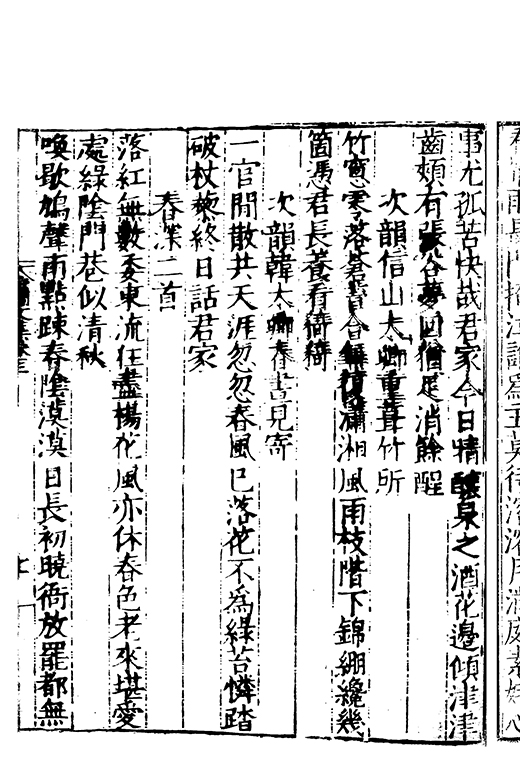 事尤孤苦快哉君家今日精釀泉之酒花邊傾津津
齒頰有張谷夢回猶足消餘酲
次韻信山大卿重葺竹所
竹窓零落舊 今 復瀟湘風雨枝階下錦綳纔幾
箇馮君長養看猗猗
次韻韓大卿春晝見寄
一官閒散共天涯忽忽春風已落花不為綠苔憐踏
破杖藜終日話君家
春深二首
落紅無數委東流狂盡楊花風亦休春色老來堪愛
處綠陰門巷似清秋
喚歇鳩聲雨點踈春陰漠漠日長初曉衙放罷都無